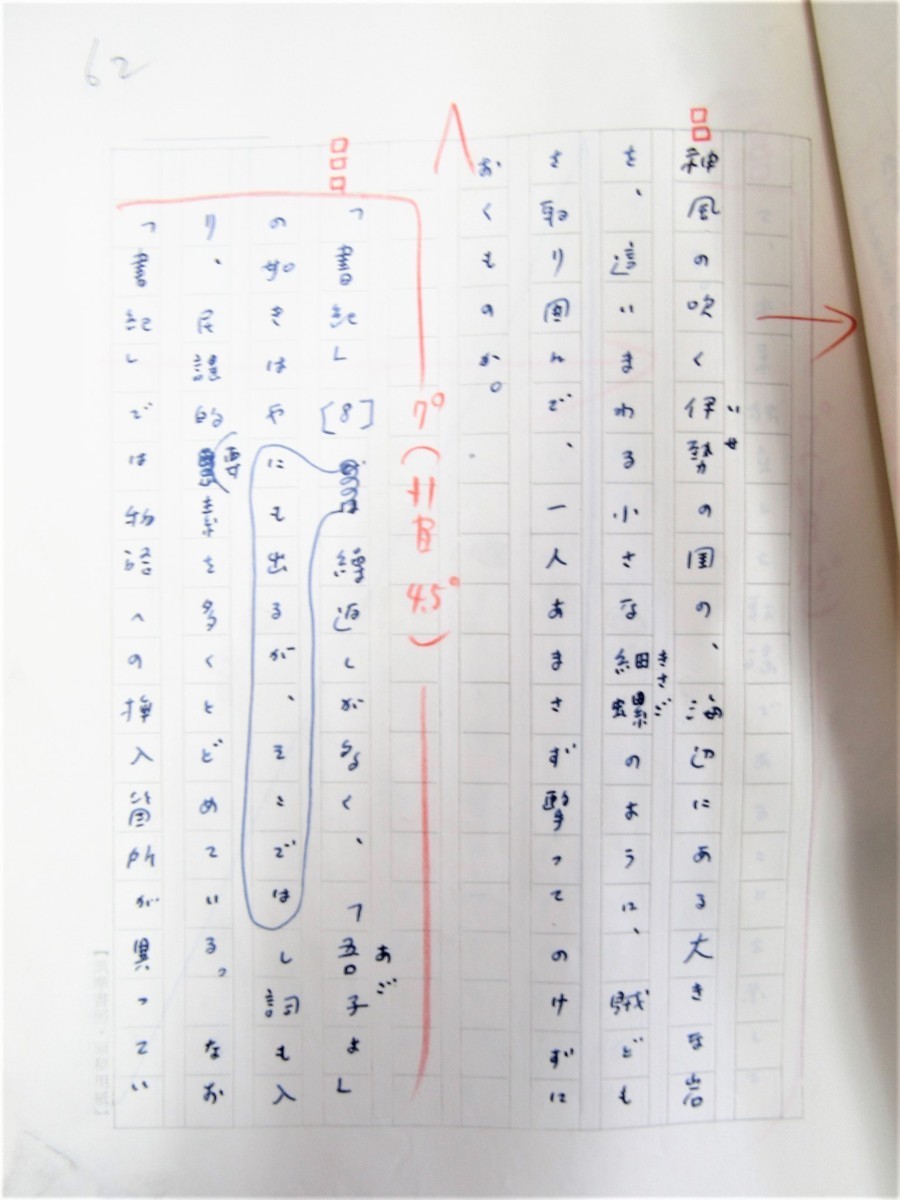 62
神風の吹く伊勢の国の、海辺にある大きな岩
いせ
を、這いまわる小さな細螺のように、賊ども
きさご
を取り囲んで、一人あまさず撃ってのけずに
おくものか。
「書紀」[8]は繰返しがなく、「吾子よ」
あご
の如きはやにも出るが、そこではし詞も入
り、民謡的要素を多くとどめている。なお
「書紀」では物語への挿入箇所が異ってい